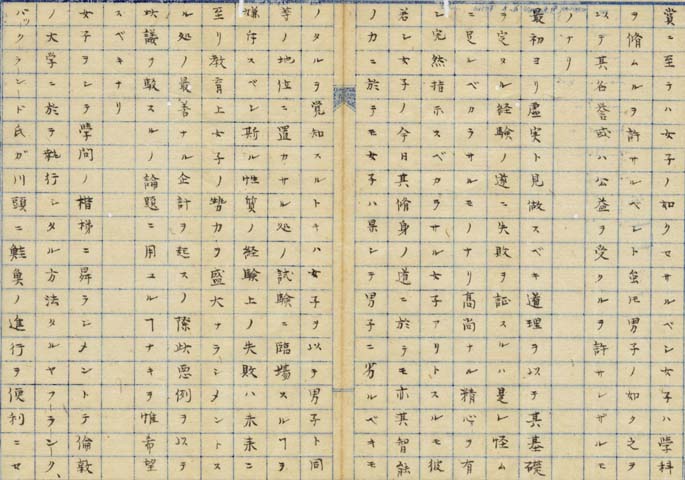 賞ニ至テハ女子ノ如クセサルベシ女子ハ學科
ヲ脩ムルヲ許サルベシト虽𪜈男子ノ如ク之ヲ
以テ其名誉或ハ公益ヲ受クルヲ許サレザルモ
ノナリ
最初ヨリ虚実ト見做スベキ道理ヲ以テ其基礎
ヲ定タル経験ノ道ニ失敗ヲ証スルハ是レ怪ム
ニ足レベカラサルモノナリ高尚ナル精心ヲ有
シ完然指ホスベカラサル女子アリトスルモ彼
若シ女子ノ今日其脩身ノ道ニ於テモ亦其智能
ノ力ニ於テモ女子ハ果シテ男子ニ劣ルベキモ
ノタルヲ覚知スルトキハ女子ヲ以テ男子ト同
等ノ地位ニ置カサル処ノ試験ニ臨場スルヿヲ
嫌斥スベシ斯ル性質ノ経験上ノ失敗ハ未来ニ
至リ教育上女子ノ勢力ヲ盛大ナラシメントス
ル処ノ最善ナル企計ヲ起スノ際此悪例ヲ以テ
此議ヲ駁スルノ論題ニ用ユルヿナキヲ惟希望
スベキナリ
女子ヲシテ學問ノ楷梯ニ昇ラシメントテ倫敦
ノ大学ニ於テ執行シタル方法タルヤフーランク、
バックランド氏ガ川頭ニ鮭魚ノ進行ヲ便利ニセ